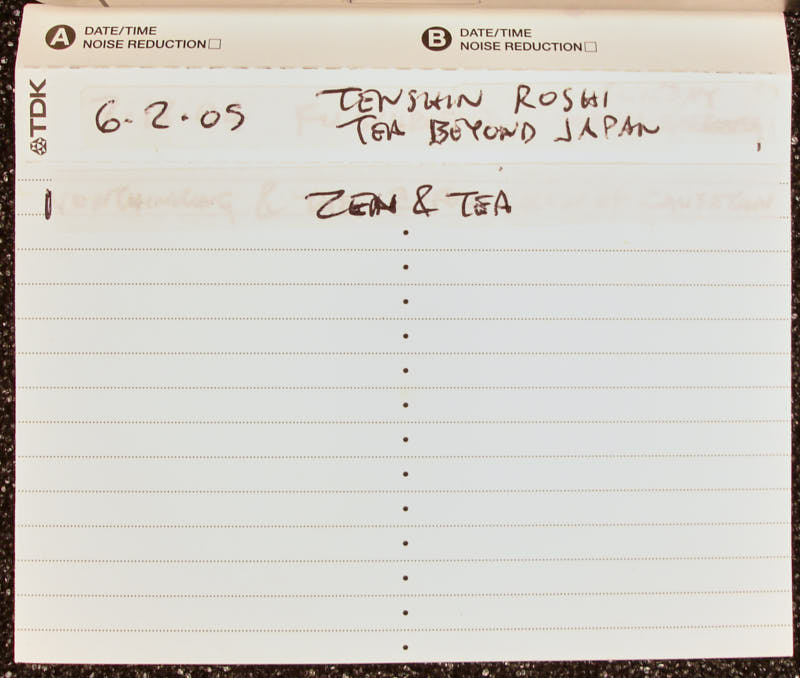 A DATE/TIME
NOISE REDUCTION
B DATE/TIME
NOISE REDUCTION
TDK
6-2-05
TENSHIN ROSHI
TEA BEYOND JAPAN
ZEN & TEA